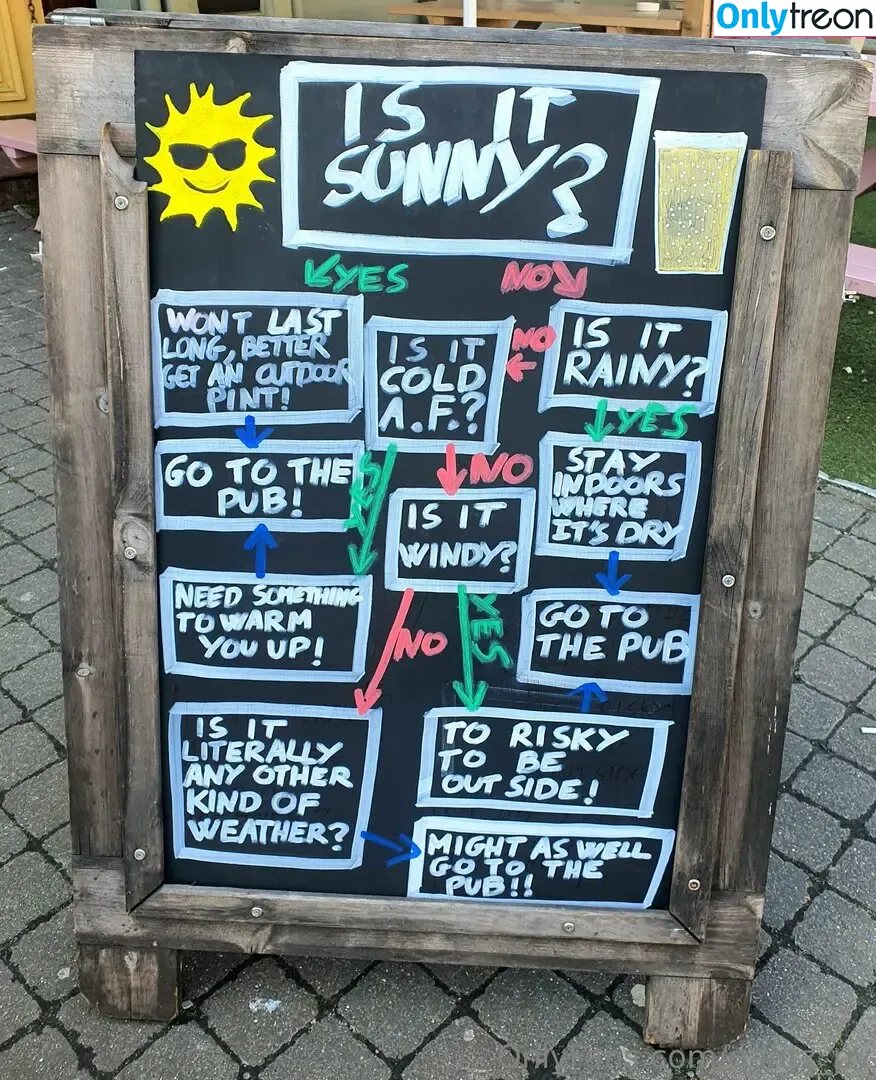 Onlytreon
IS IT
SUNNY?
YES
NO
WONT LAST
LONG, BETTER
GET AN OUTDOOR
PINT!
IS IT
COLD
A.F.?
NO
IS IT
RAINY?
YES
GO TO THE
PUB!
YES
NO
STAY
INDOORS
WHERE
IT'S DRY
IS IT
WINDY?
NEED SOMETHING
TO WARM
YOU UP!
NO
YES
GO TO
THE PUB
IS IT
LITERALLY
ANY OTHER
KIND OF
WEATHER?
TO RISKY
TO BE
OUT SIDE!
MIGHT AS WELL
GO TO THE
PUB!!